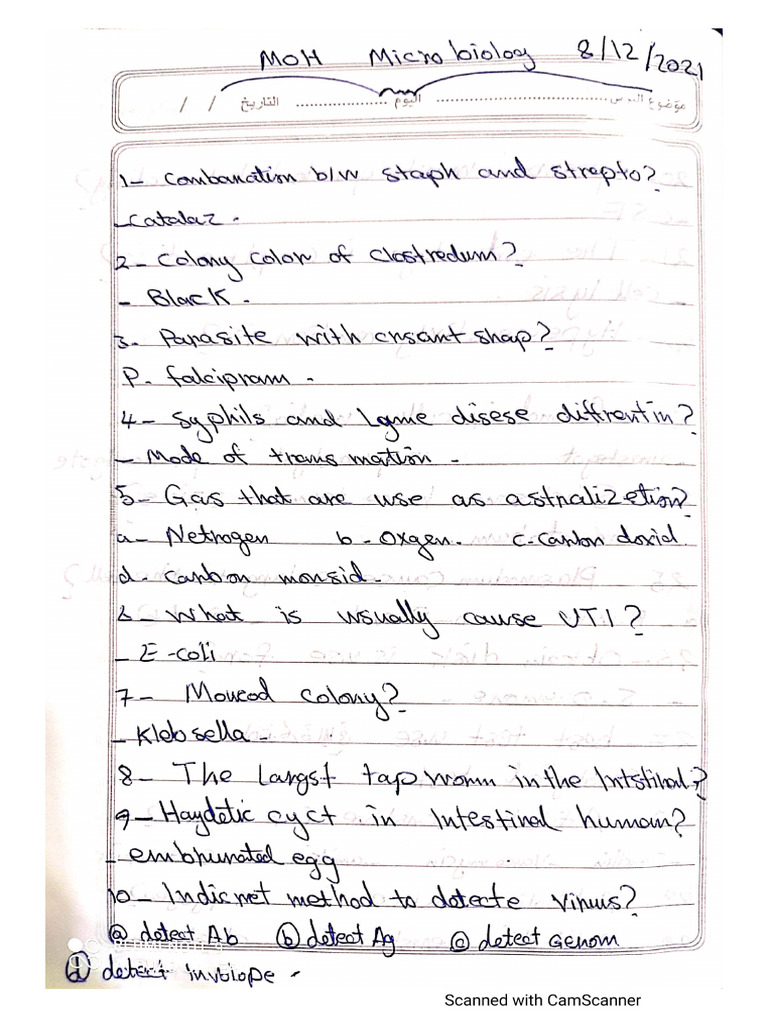 MOH Microbiology 8/12/2021
موضوع الدرس ............ اليوم ............ التاريخ / /
1- Combanation b/w staph and strepto?
- Catalaz.
2- Colony color of Clostredum?
- Black.
3- Parasite with crsant shap?
P. falcipram -
4- Syphils and Lyme disese diffrentin?
- Mode of trans mation -
5- Gas that are use as astralizetion?
a- Netrogen b- Oxgen. c- Canbon doxid.
d. Canbon monsid.
6- What is usually cause UTI?
- E-coli
7- Moucod colony?
- Klebsella -
8- The Largst tap worm in the Intstinal?
9- Haydetic cyct in Intestinal human?
- embrunated egg
10- Indicret method to detecte virus?
@ detect Ab (b) detect Ag (c) detect Genom
(d) detect inviolpe -
Scanned with CamScanner